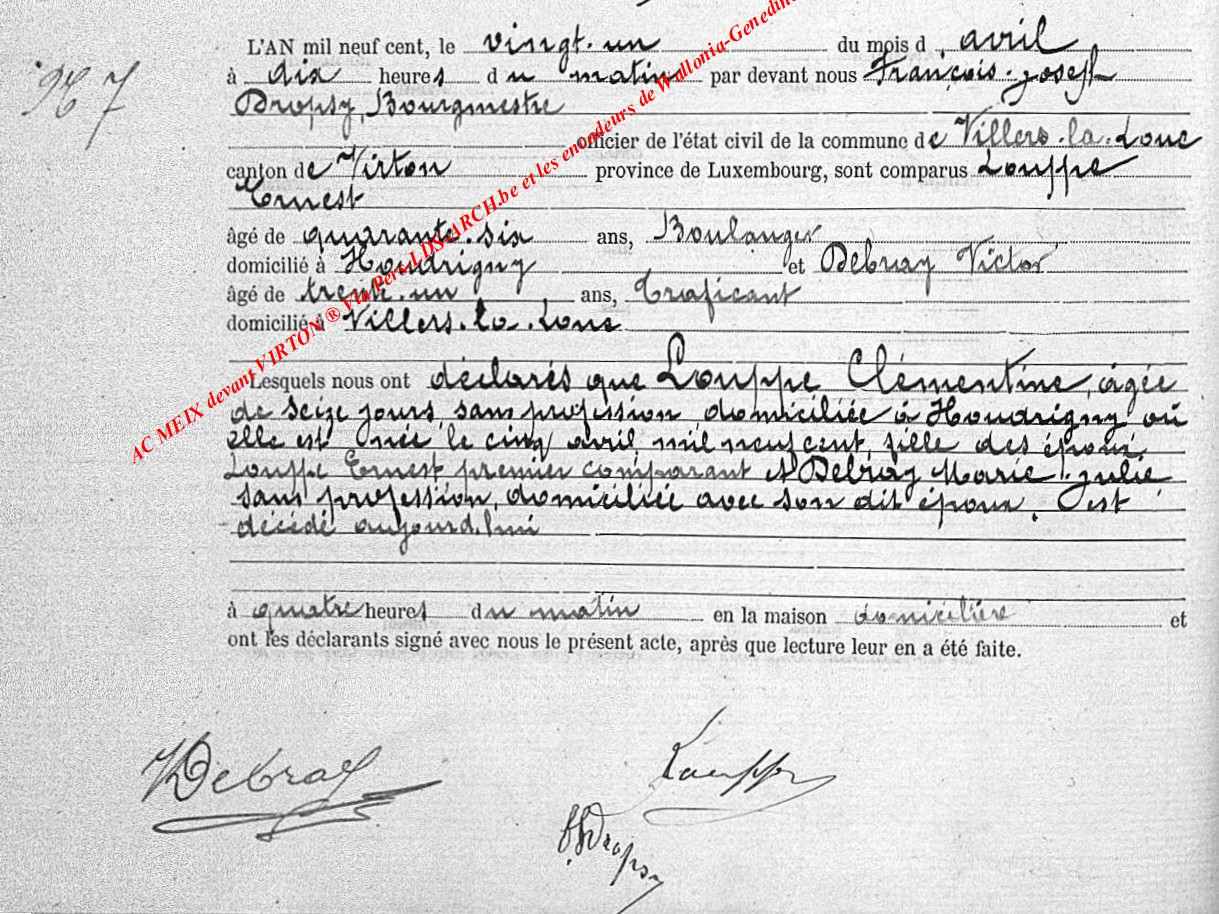 L'AN mil neuf cent, le vingt-un du mois d avril
N° 7
à dix heures du matin par devant nous François-Joseph
Dropsy, Bourgmestre
officier de l'état civil de la commune de Villers-la-Loue
canton de Virton province de Luxembourg, sont comparus Louppe
Ernest
âgé de quarante-six ans, Boulanger
domicilié à Houdrigny et Debray Victor
âgé de trente-un ans, Traficant
domicilié à Villers-la-Loue
Lesquels nous ont déclarés que Louppe Clémentine, âgée
de seize jours, sans profession domiciliée à Houdrigny où
elle est née, le cinq avril mil neuf cent, fille des époux,
Louppe Ernest, premier comparant et Debray Marie-Julie
sans profession, domiciliée avec son dit époux, est
décédé aujourd'hui
à quatre heures du matin en la maison domicilière et
ont les déclarants signé avec nous le présent acte, après que lecture leur en a été faite.
VDebray
Louppe
F.J.Dropsy
AC MEIX devant VIRTON ® Via Perè LDS-ARCH.be et les encodeurs de Wallonia-Genedine